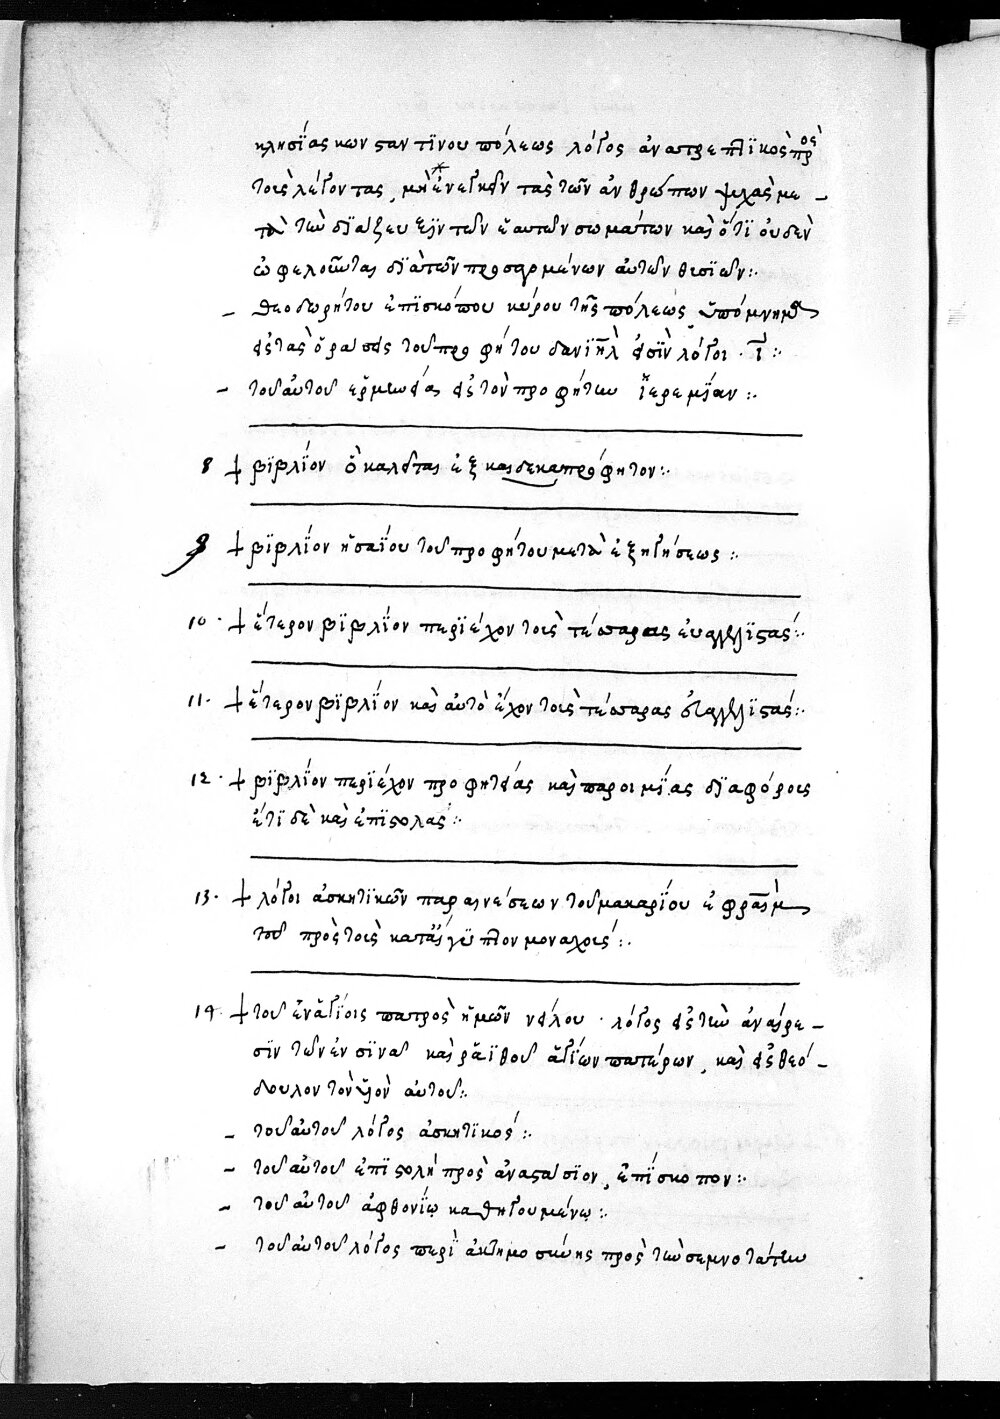 κλησΐας κωνσταντΐνου πόλεως λόγος ἀναστρεπτϊκὸς πρὸς
τοὺς λέγοντας, μὴ ἐνεργεῖν τὰς τῶν ἀνθρώπων ψυχὰς με-
τὰ τὴν διάζευξϊν τῶν ἑαυτῶν σωμάτων καὶ ὅτϊ οὐδὲν
ὠφελοῦνται δϊὰ τῶν προσαγομένων αὐτῶν θυσϊῶν:
- θεοδωρήτου ἐπϊσκόπου κύρου τῆς πόλεως ὑπόμνημα
εἰς τὰς ὁράσεις τοῦ προφήτου δανϊὴλ εἰσὶν λόγοι · ῑ :
- τοῦ αὐτοῦ ἑρμηνεία εἰς τὸν προφήτην ἱερεμΐαν :
8 + βϊβλΐον ὃ καλεῖται ἑξκαιδεκαπρόφητον:
9 + βϊβλΐον ἡσαΐου τοῦ προφήτου μετὰ ἐξηγήσεως :
10 · + ἕτερον βϊβλΐον περϊέχον τοὺς τέσσαρας εὐαγγελϊστάς:
11 · + ἕτερον βϊβλΐον καὶ αὐτὸ ἔχον τοὺς τέσσαρας εὐαγγελϊστάς:
12 · + βϊβλΐον περϊέχον προφητείας καὶ παροιμΐας δϊαφόρους
ἔτϊ δὲ καὶ ἐπϊστολάς :
13 · + λόγοι ἀσκητϊκῶν παραινέσεων τοῦ μακαρΐου ἐφραὶμ
τοῦ πρὸς τοὺς κατ' αἴγυπτον μοναχούς :
14 · + τοῦ ἐν ἁγΐοις πατρὸς ἡμῶν νείλου · λόγος εἰς τὴν ἀναίρε-
σϊν τῶν ἐν σϊνᾶ καὶ ῥαϊθοῦ ἁγΐων πατέρων, καὶ εἰς θεό-
δουλον τὸν υἱὸν αὐτοῦ:
- τοῦ αὐτοῦ λόγος ἀσκητϊκός :
- τοῦ αὐτοῦ ἐπϊστολὴ πρὸς ἀναστάσϊον, ἐπΐσκοπον:
- τοῦ αὐτοῦ ἀφθονΐῳ καθηγουμένῳ :
- τοῦ αὐτοῦ λόγος περϊ ἀκτημοσύνης πρὸς τὴν σεμνοτάτην